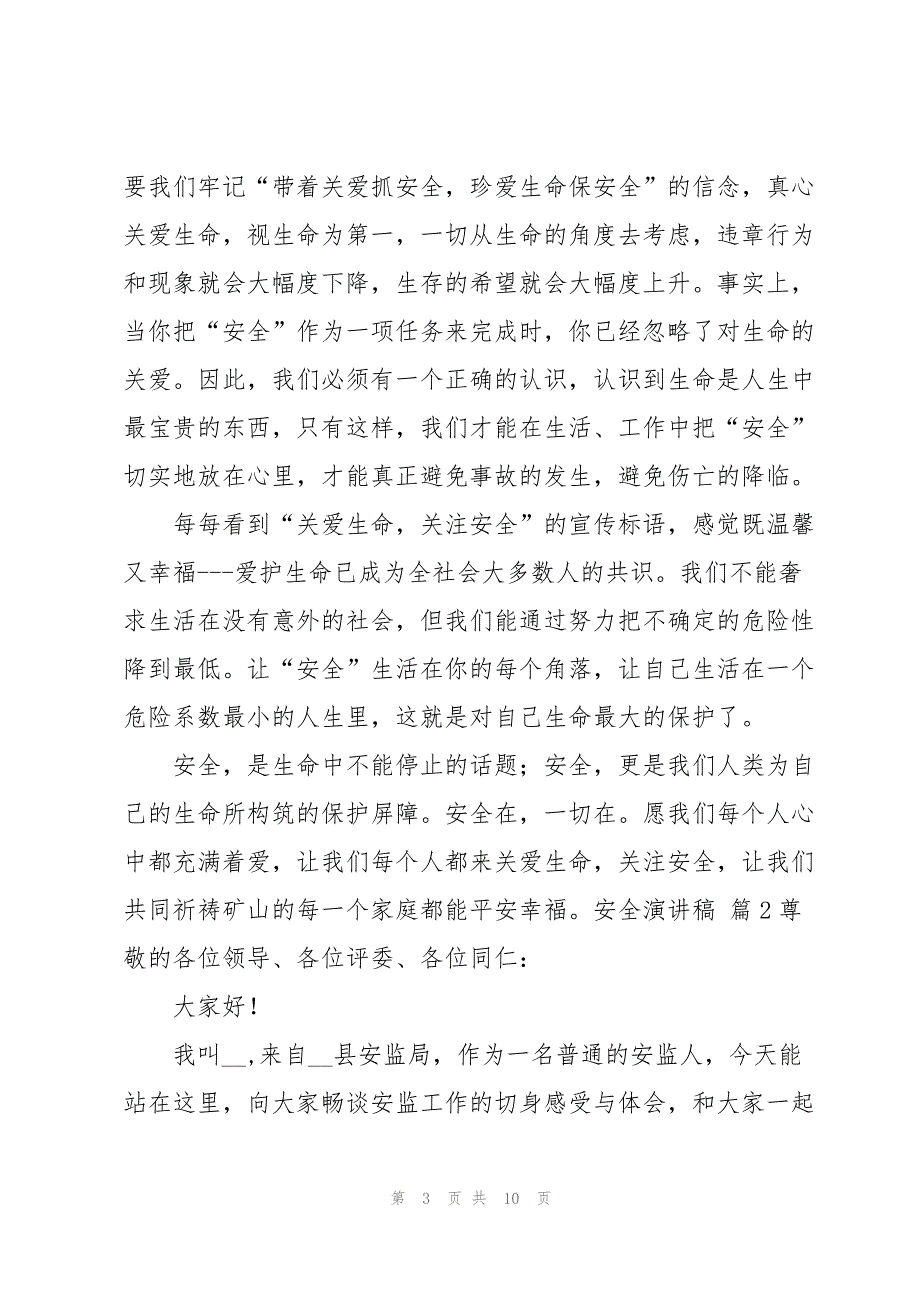 要我们牢记“带着关爱抓安全，珍爱生命保安全”的信念，真心
关爱生命，视生命为第一，一切从生命的角度去考虑，违章行为
和现象就会大幅度下降，生存的希望就会大幅度上升。事实上，
当你把“安全”作为一项任务来完成时，你已经忽略了对生命的
关爱。因此，我们必须有一个正确的认识，认识到生命是人生中
最宝贵的东西，只有这样，我们才能在生活、工作中把“安全”
切实地放在心里，才能真正避免事故的发生，避免伤亡的降临。
每每看到“关爱生命，关注安全”的宣传标语，感觉既温馨
又幸福---爱护生命已成为全社会大多数人的共识。我们不能奢
求生活在没有意外的社会，但我们能通过努力把不确定的危险性
降到最低。让“安全”生活在你的每个角落，让自己生活在一个
危险系数最小的人生里，这就是对自己生命最大的保护了。
安全，是生命中不能停止的话题；安全，更是我们人类为自
己的生命所构筑的保护屏障。安全在，一切在。愿我们每个人心
中都充满着爱，让我们每个人都来关爱生命，关注安全，让我们
共同祈祷矿山的每一个家庭都能平安幸福。安全演讲稿 篇2尊
敬的各位领导、各位评委、各位同仁：
大家好！
我叫__,来自__县安监局，作为一名普通的安监人，今天能
站在这里，向大家畅谈安监工作的切身感受与体会，和大家一起
第 3 页 共 10 页